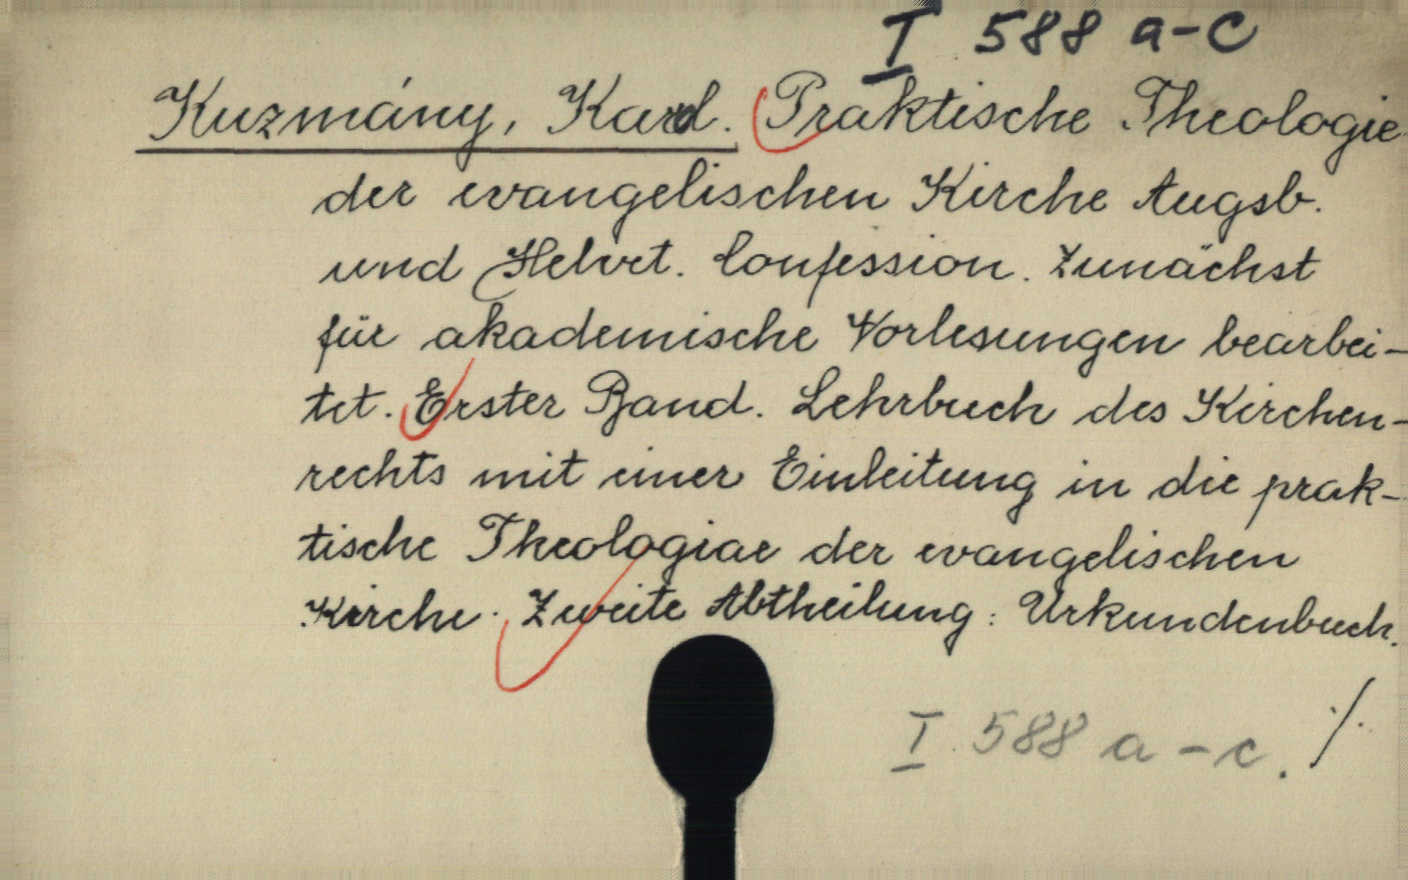 I 588 a-c
Kuzmány, Karl. Praktische Theologie
der evangelischen Kirche Augsb.
und Helvet. Confession. Zunächst
für akademische Vorlesungen bearbei-
tet. Erster Band. Lehrbuch des Kirchen-
rechts mit einer Einleitung in die prak-
tische Theologiae der evangelischen
Kirche. Zweite Abtheilung: Urkundenbuch.
I 588 a-c. ./.